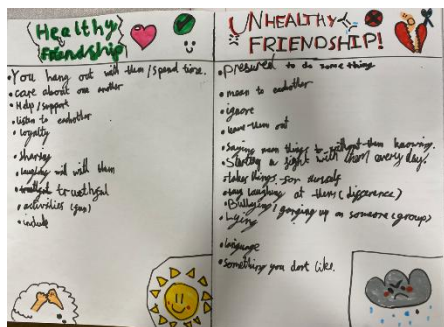 Healthy
Friendship
• You hang out with them / spend time.
• care about one another
• Help / support
• listen to eachother
• loyalty
• sharing
• laughing with them
• truthful
• activities (fun)
• include
UNHEALTHY
FRIENDSHIP!
• presured to do something
• mean to eachother
• ignore
• leave them out
• saying mean things to without them knowing.
• Starting a fight with them every day.
• takes things for
• laughing at them (difference)
• Bullying / ganging up on someone (group)
• Lying
• language
• something you dont like.